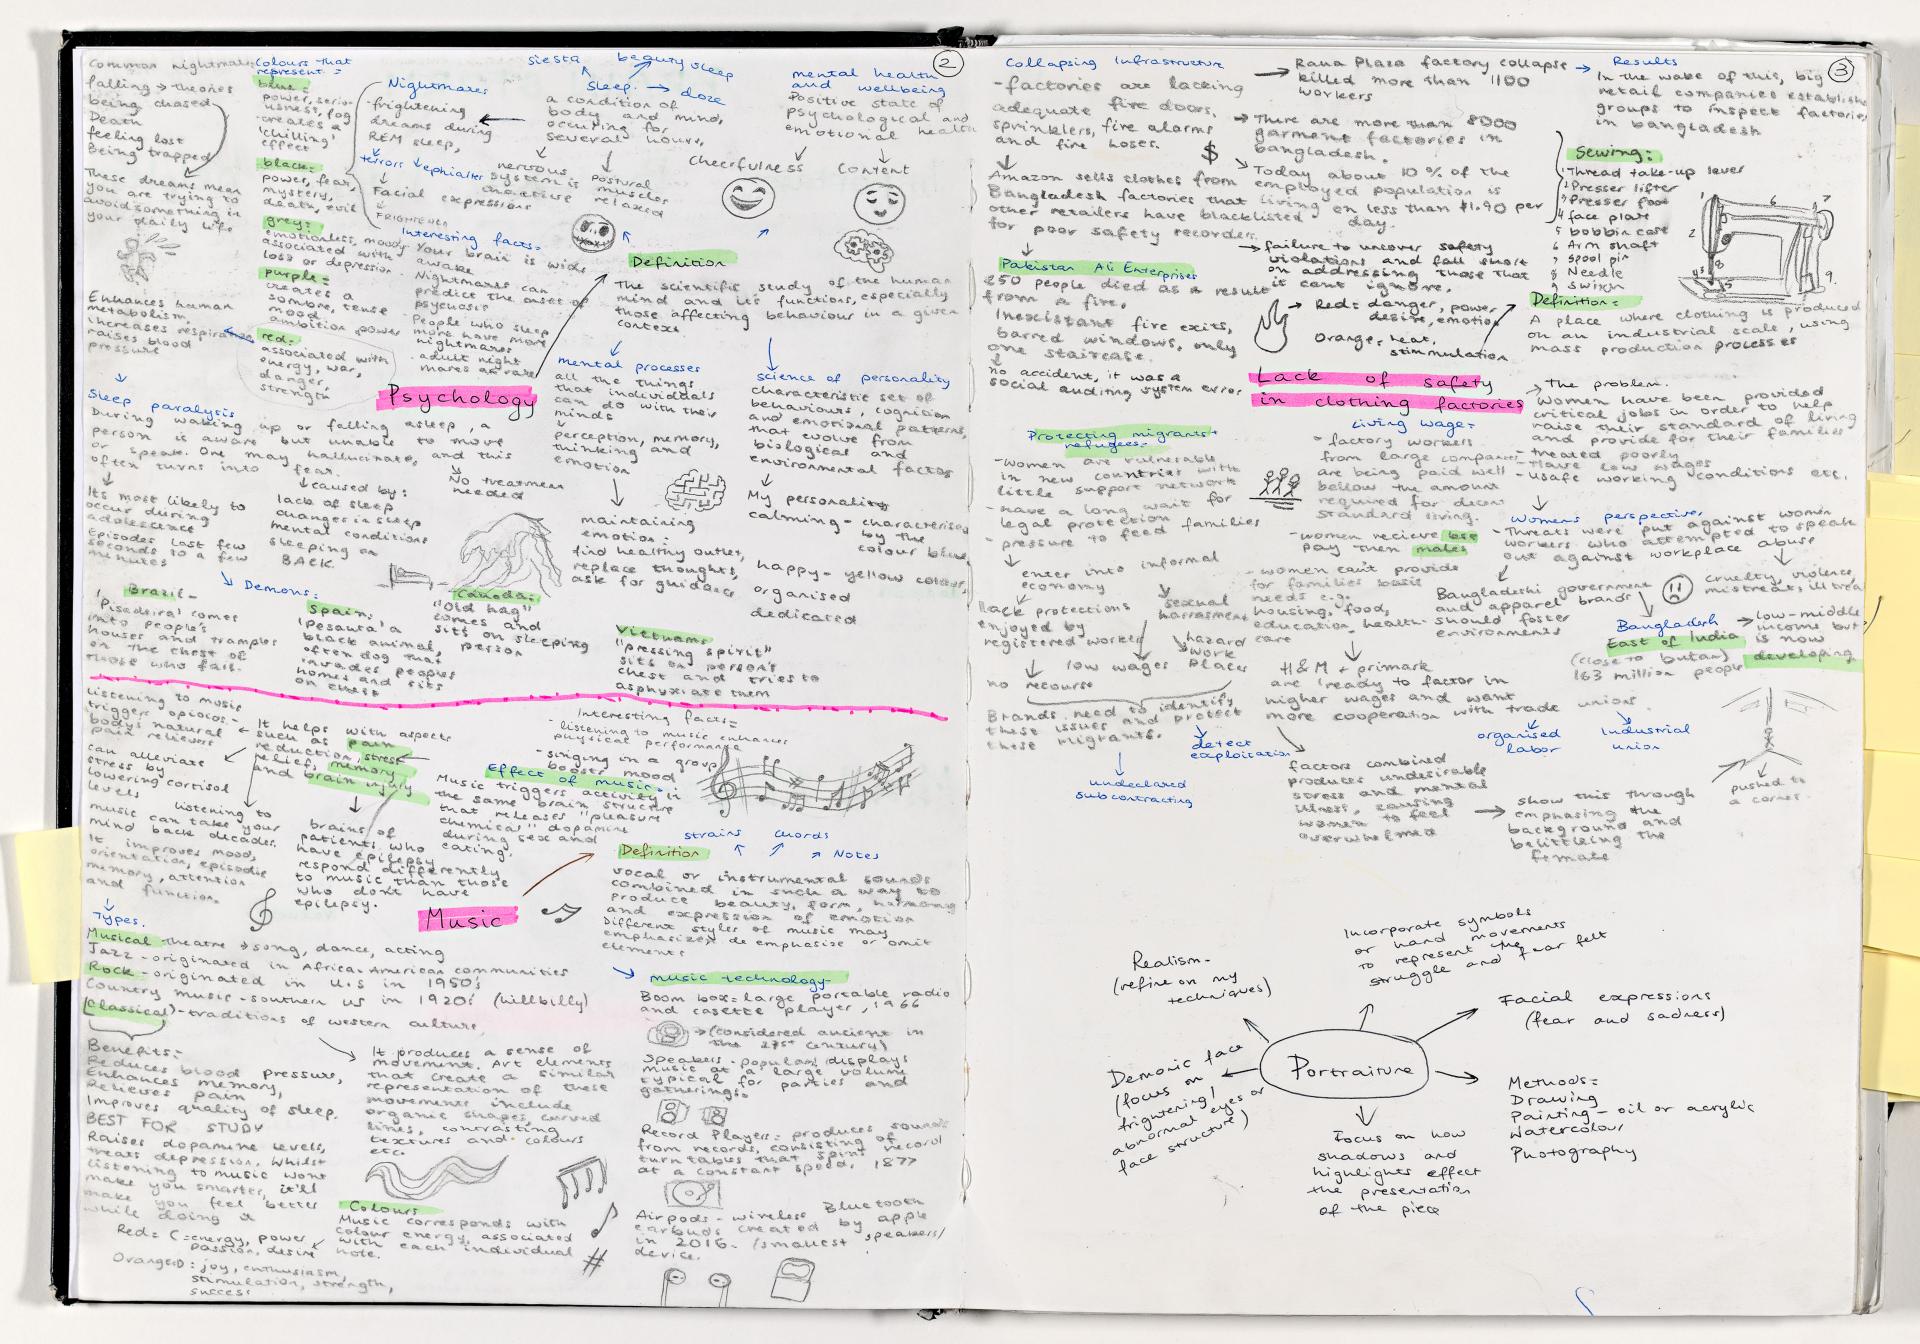 2
Common nightmares
falling → theories
being chased
Death
feeling lost
Being trapped
These dreams mean
you are trying to
avoid something in
your daily life
Enhances human
metabolism,
increases respiration
raises blood
pressure
Colours that
represent:
blue=
power, serio-
usness, fog
creates a
'chilling'
effect
black:
power, fear,
mystery,
death, evil
grey:
emotionless, moody
associated with
loss or depression
purple=
creates a
sombre, tense
mood
ambition, power
red:
associated with
energy, war,
danger,
strength
Nightmares
-frightening
dreams during
REM sleep,
terrors
ephialtes
Facial
expressions
FRIGHTEN
Interesting facts:
Your brain is wide
awake
Nightmares can
predict the onset of
psychosis
People who sleep
more have more
nightmares
adult night
mares are rare
siesta
beauty sleep
Sleep. → doze
a condition of
body and mind,
occuring for
several hours,
nervous
system is
inactive
postural
muscles
relaxed
mental health
and wellbeing
Positive state of
psychological and
emotional health
Cheerfulness
Content
Definition
The scientific study of the human
mind and it's functions, especially
those affecting behaviour in a given
context
Psychology
mental processes
all the things
that individuals
can do with their
minds
perception, memory,
thinking and
emotion
maintaining
emotion:
find healthy outlet,
replace thoughts,
ask for guidance
science of personality
characteristic set of
behaviours, cognition
and emotional patterns,
that evolve from
biological and
environmental factors
My personality
calming - characterised
by the
colour blue,
happy - yellow colour,
organised
dedicated
Sleep paralysis
During waking up or falling asleep, a
person is aware but unable to move
or speak. One may hallucinate, and this
often turns into fear.
No treatment
needed
Its most likely to
occur during
adolescence
Episodes last few
seconds to a few
minutes
caused by:
lack of sleep
changes in sleep
mental conditions
sleeping on
BACK
Demons:
Brazil-
'Pisadeira' comes
into people's
houses and tramples
on the chest of
those who fall.
Spain:
'pesanta' a
black animal,
often dog that
invades peoples
homes and sits
on chest
Canada:
"Old hag"
comes and
sits on sleeping
person
Vietnam:
"pressing spirit"
sits on person's
chest and tries to
asphyxiate them
Listening to music
trigger opioids-
body's natural
pain relievers
can alleviate
stress by
lowering cortisol
levels
listening to
music can take your
mind back decades.
It improves mood,
orientation, episodic
memory, attention
and function.
It helps with aspects
such as pain
reduction, stress
relief, memory
and brain injury
brains of
patients who
have epilepsy
respond differently
to music than those
who dont have
epilepsy.
Interesting facts=
-listening to music enhances
physical performance
-singing in a group
boosts mood
Effect of music.
Music triggers activity in
the same brain structure
that releases "pleasure
chemical" dopamine
during sex and
eating.
strains
chords
Notes
Definition
vocal or instrumental sounds
combined in such a way to
produce beauty, form, harmony
and expression of emotion
Different styles of music may
emphasize, de emphasize or omit
elements
Music
Types.
Musical theatre → song, dance, acting
Jazz - originated in African American communities
Rock - originated in U.S in 1950's
Country music - southern US in 1920's (hillbilly)
(Classical) - traditions of western culture,
Benefits:-
Reduces blood pressure,
Enhances memory,
Relieves pain
Improves quality of sleep.
BEST FOR STUDY
Raises dopamine levels,
treats depression. Whilst
listening to music wont
make you smarter, it'll
make you feel better
while doing it
It produces a sense of
movement. Art elements
that create a similar
representation of these
movements include
organic shapes, curved
lines, contrasting
textures and colours
etc.
Colours
Music corresponds with
colour energy, associated
with each individual
note.
Red= C = energy, power
passion, desire
Orange=D: joy, enthusiasm,
stimulation, strength,
success
#
music technology-
Boom box= large portable radio
and casette player, 1966
→ (considered ancient in
the 21st century)
Speakers - popular, displays
music at a large volume
typical for parties and
gatherings.
Record Players= produces sounds
from records, consisting of
turntables that spins record
at a constant speed, 1877
Airpods - wireless Bluetooth
earbuds created by apple
in 2016. /smallest speakers/
device.
3
Collapsing Infrastructure
-factories are lacking
adequate fire doors,
sprinklers, fire alarms
and fire hoses.
Amazon sells clothes from
Bangladesh factories that
other retailers have blacklisted
for poor safety recorder.
Pakistan Ali Enterprises
250 people died as a result
from a fire.
Inexistant fire exits,
barred windows, only
one staircase.
no accident, it was a
social auditing system error
→ Rana Plaza factory collapse
killed more than 1100
workers
→ There are more than 8000
garment factories in
bangladesh.
$
Today about 10% of the
employed population is
living on less than $1.90 per
day.
→ failure to uncover safety
violations and fall short
on addressing those that
it cant ignore.
Red: danger, power
desire, emotion
Orange, heat,
stimmulation
Results
In the wake of this, big
retail companies establish
groups to inspect factories
in bangladesh
Sewing:
1 Thread take-up lever
2 Presser lifter
3 Presser foot
4 face plate
5 bobbin case
6 Arm shaft
7 Spool pin
8 Needle
9 switch
1
2
6
7
8
9.
Definition=
A place where clothing is produced
on an industrial scale, using
mass production processes
Lack of safety
in clothing factories
→ The problem.
Women have been provided
critical jobs in order to help
raise their standard of living
and provide for their families
- treated poorly
- Have low wages
- Usafe working conditions etc.
Protecting migrants +
refugees=
-women are vulnerable
in new countries with
little support network
- have a long wait for
legal protection
- pressure to feed families
enter into informal
economy
lack protections
enjoyed by
registered worker
sexual
harrasment
hazard
work
places
low wages
no recourse
Brands need to identify
these issues and protect
these migrants.
detect
exploitation
undeclared
subcontracting
Living wage=
factory workers
from large companies
are being paid well
bellow the amount
required for decent
standard living.
-women recieve less
pay then males
- women cant provide
for families basic
needs e.g.
housing, food,
education, health-
care
H&M + primark
are 'ready to factor in
higher wages and want
more cooperation with trade unions.
organised
labor
Industrial
union
factors combined
produces undesirable
stress and mental
illness, causing
women to feel
overwhelmed
→ show this through
emphasing the
background and
belittling the
female
Womens perspective
- Threats were put against women
workers who attempted to speak
out against workplace abuse
Cruelty, violence,
mistreat, ill treat
Bangladeshi government
and apparel brands
should foster
environments
Bangladesh
East of India
(close to butan)
163 million people
→ low-middle
income but
is now
developing
pushed to
a corner.
Portraiture
Realism-
(refine on my
techniques)
Incorporate symbols
or hand movements
to represent the
struggle and fear felt
Facial expressions
(fear and sadness)
Methods=
Drawing
Painting - oil or acrylic
Watercolour
Photography
Focus on how
shadows and
highlights effect
the presentation
of the piece
Demonic face
(focus on
frightening/
abnormal eyes or
face structure)